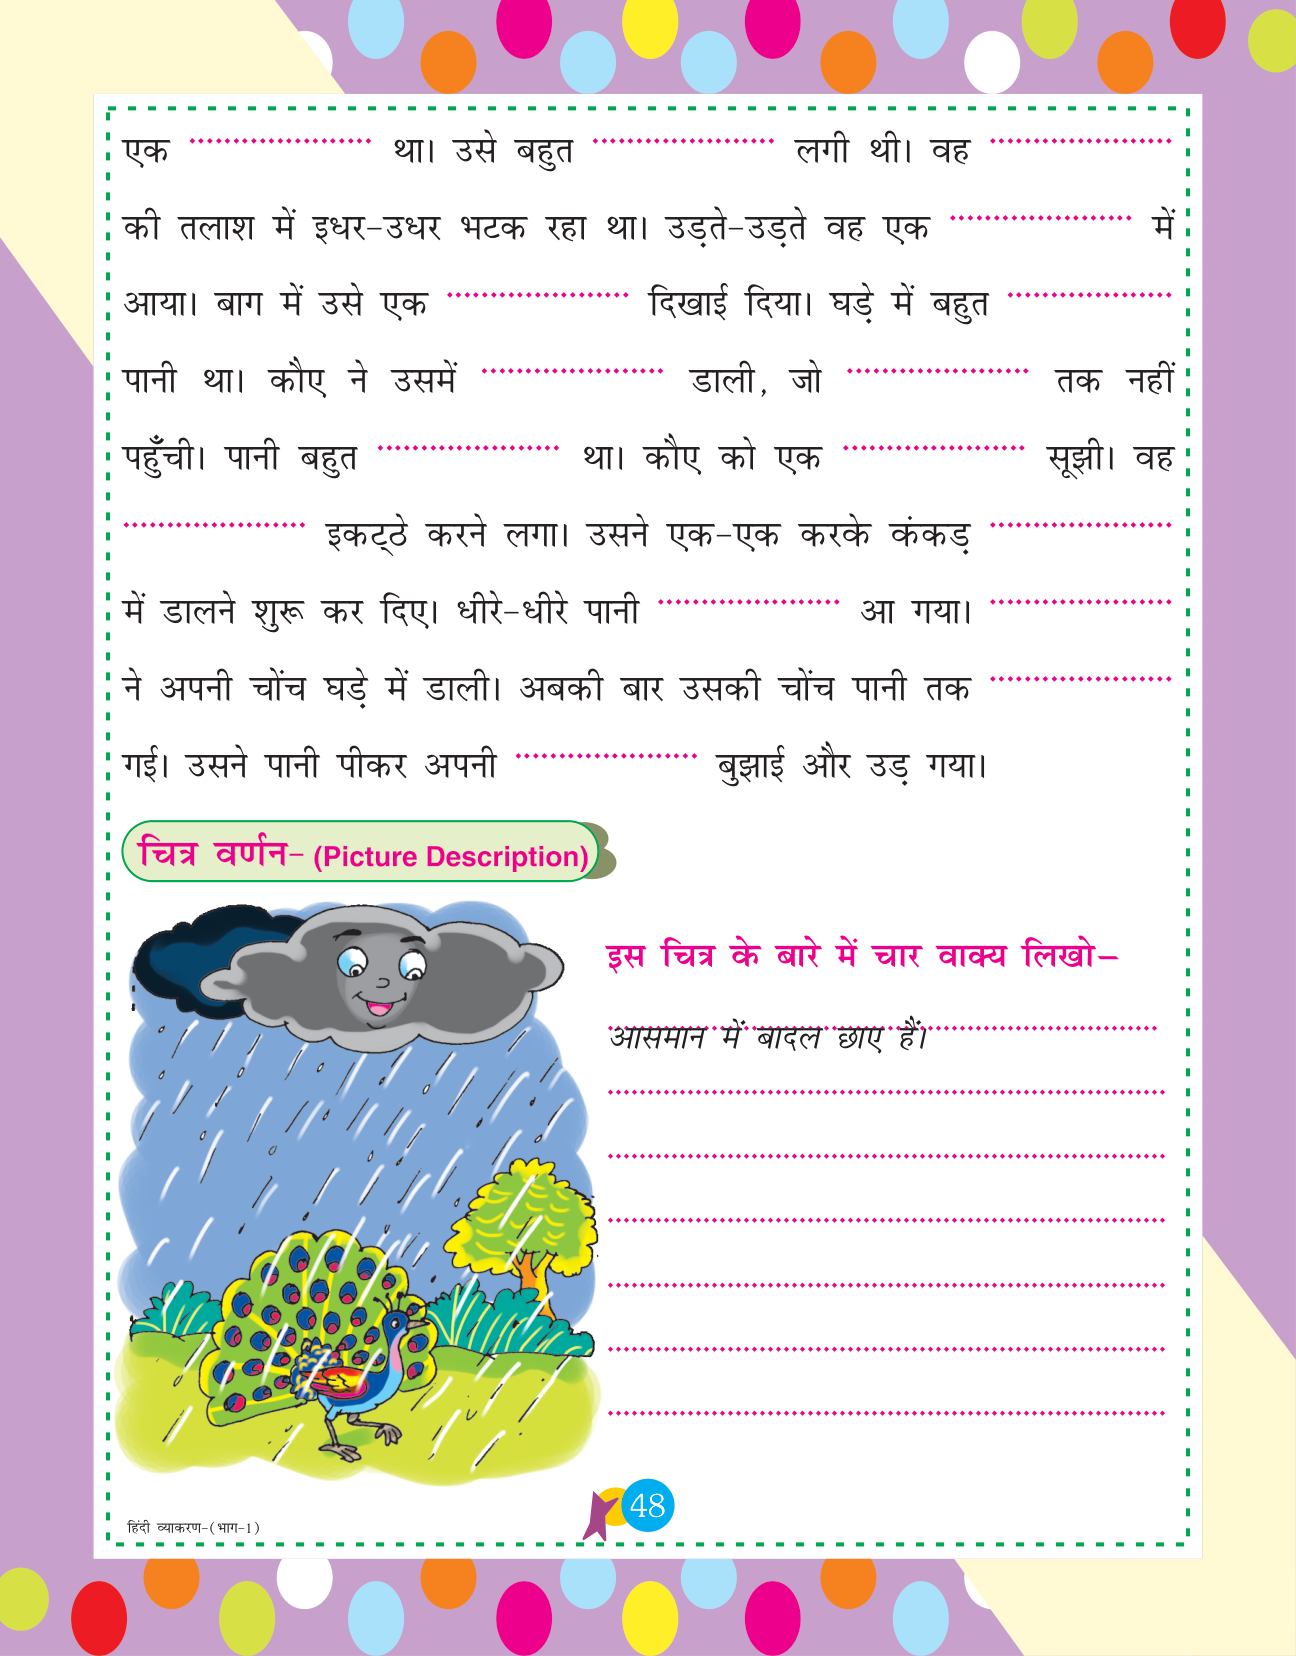 एक ..................... था। उसे बहुत ..................... लगी थी। वह .....................
की तलाश में इधर-उधर भटक रहा था। उड़ते-उड़ते वह एक ..................... में
आया। बाग में उसे एक ..................... दिखाई दिया। घड़े में बहुत .....................
पानी था। कौए ने उसमें ..................... डाली, जो ..................... तक नहीं
पहुँची। पानी बहुत ..................... था। कौए को एक ..................... सूझी। वह
..................... इकट्ठे करने लगा। उसने एक-एक करके कंकड़ .....................
में डालने शुरू कर दिए। धीरे-धीरे पानी ..................... आ गया। .....................
ने अपनी चोंच घड़े में डाली। अबकी बार उसकी चोंच पानी तक .....................
गई। उसने पानी पीकर अपनी ..................... बुझाई और उड़ गया।
चित्र वर्णन- (Picture Description)
इस चित्र के बारे में चार वाक्य लिखो-
आसमान में बादल छाए हैं।
48
हिंदी व्याकरण-(भाग-1)